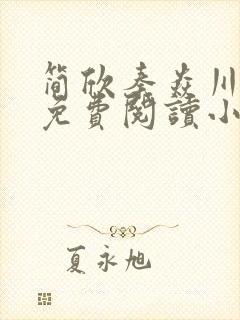 简欣秦焱川
免費閱讀小
夏永旭